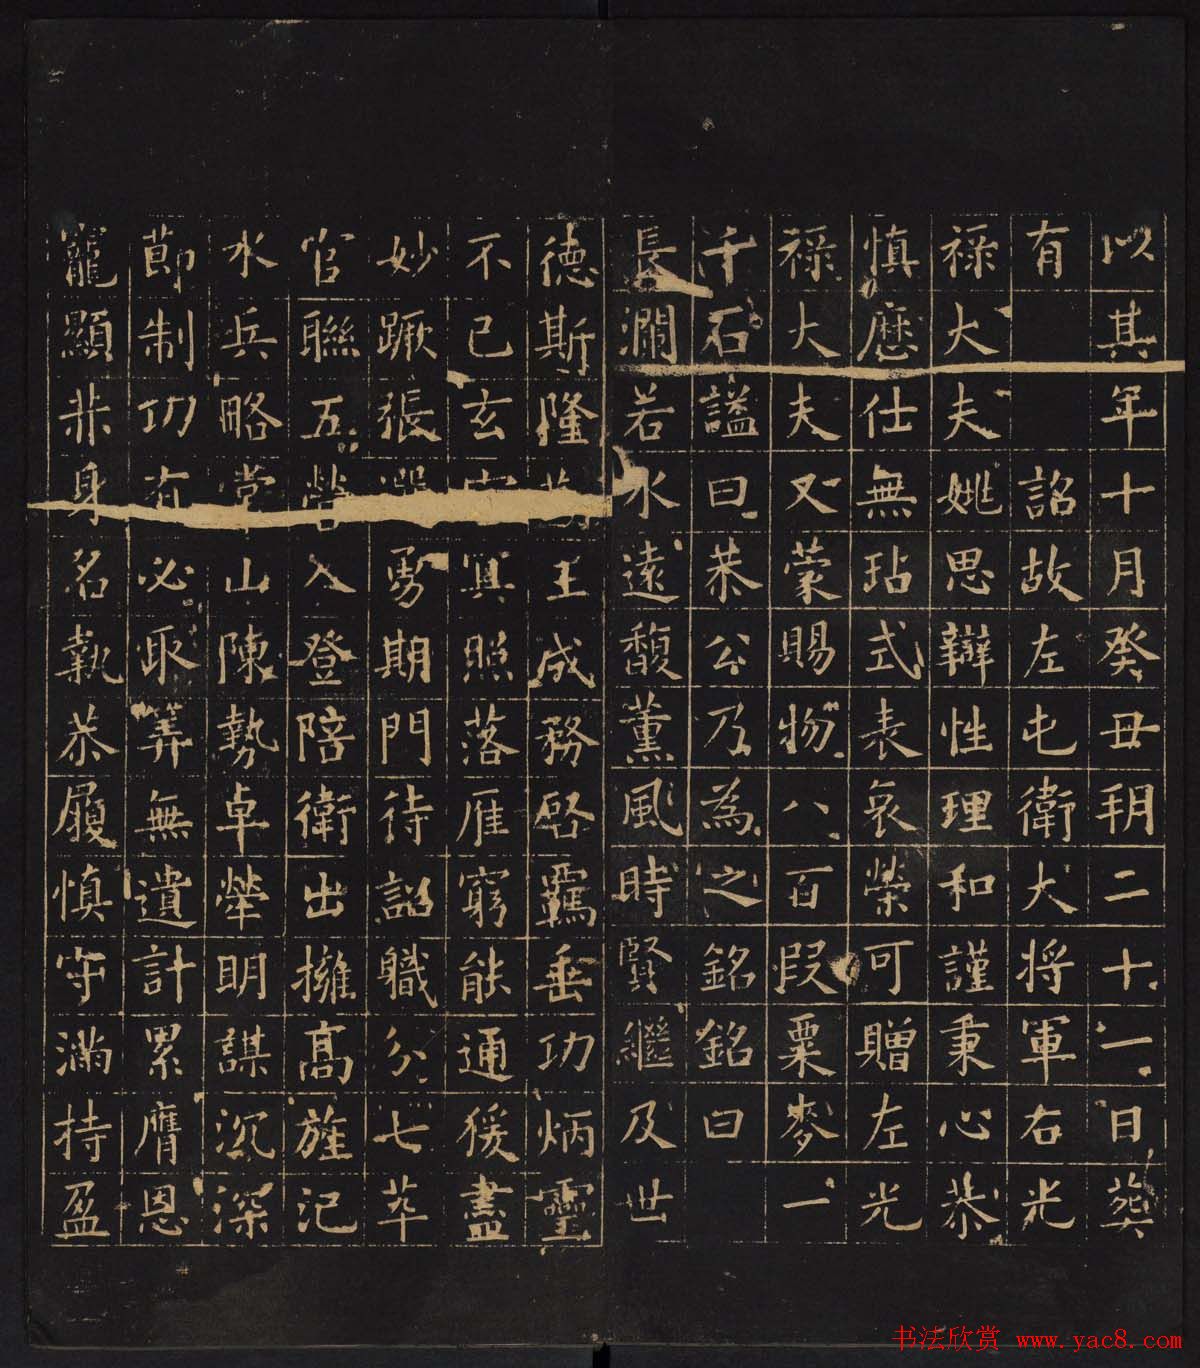 以其年十月癸丑朔二十一日葬
有詔故左屯衛大將軍右光
祿大夫姚思辯性理和謹秉心恭
慎歷仕無玷式表哀榮可贈左光
祿大夫又蒙賜物八百段粟麥一
千石謚曰恭公乃為之銘銘曰
長瀾若水遠馥薰風時賢繼及世
德斯隆王成務啓霸垂功炳靈
不已玄冥照落雁窮能通猨盡
妙蹶張勇期門待詔職分七萃
官聯五營入登陪衛出擁高旌氾
水兵略常山陳勢卓犖明謀沉深
節制功有必取筭無遺計累膺恩
寵顯茱身名執恭履慎守滿持盈
书法欣赏 www.yac8.com